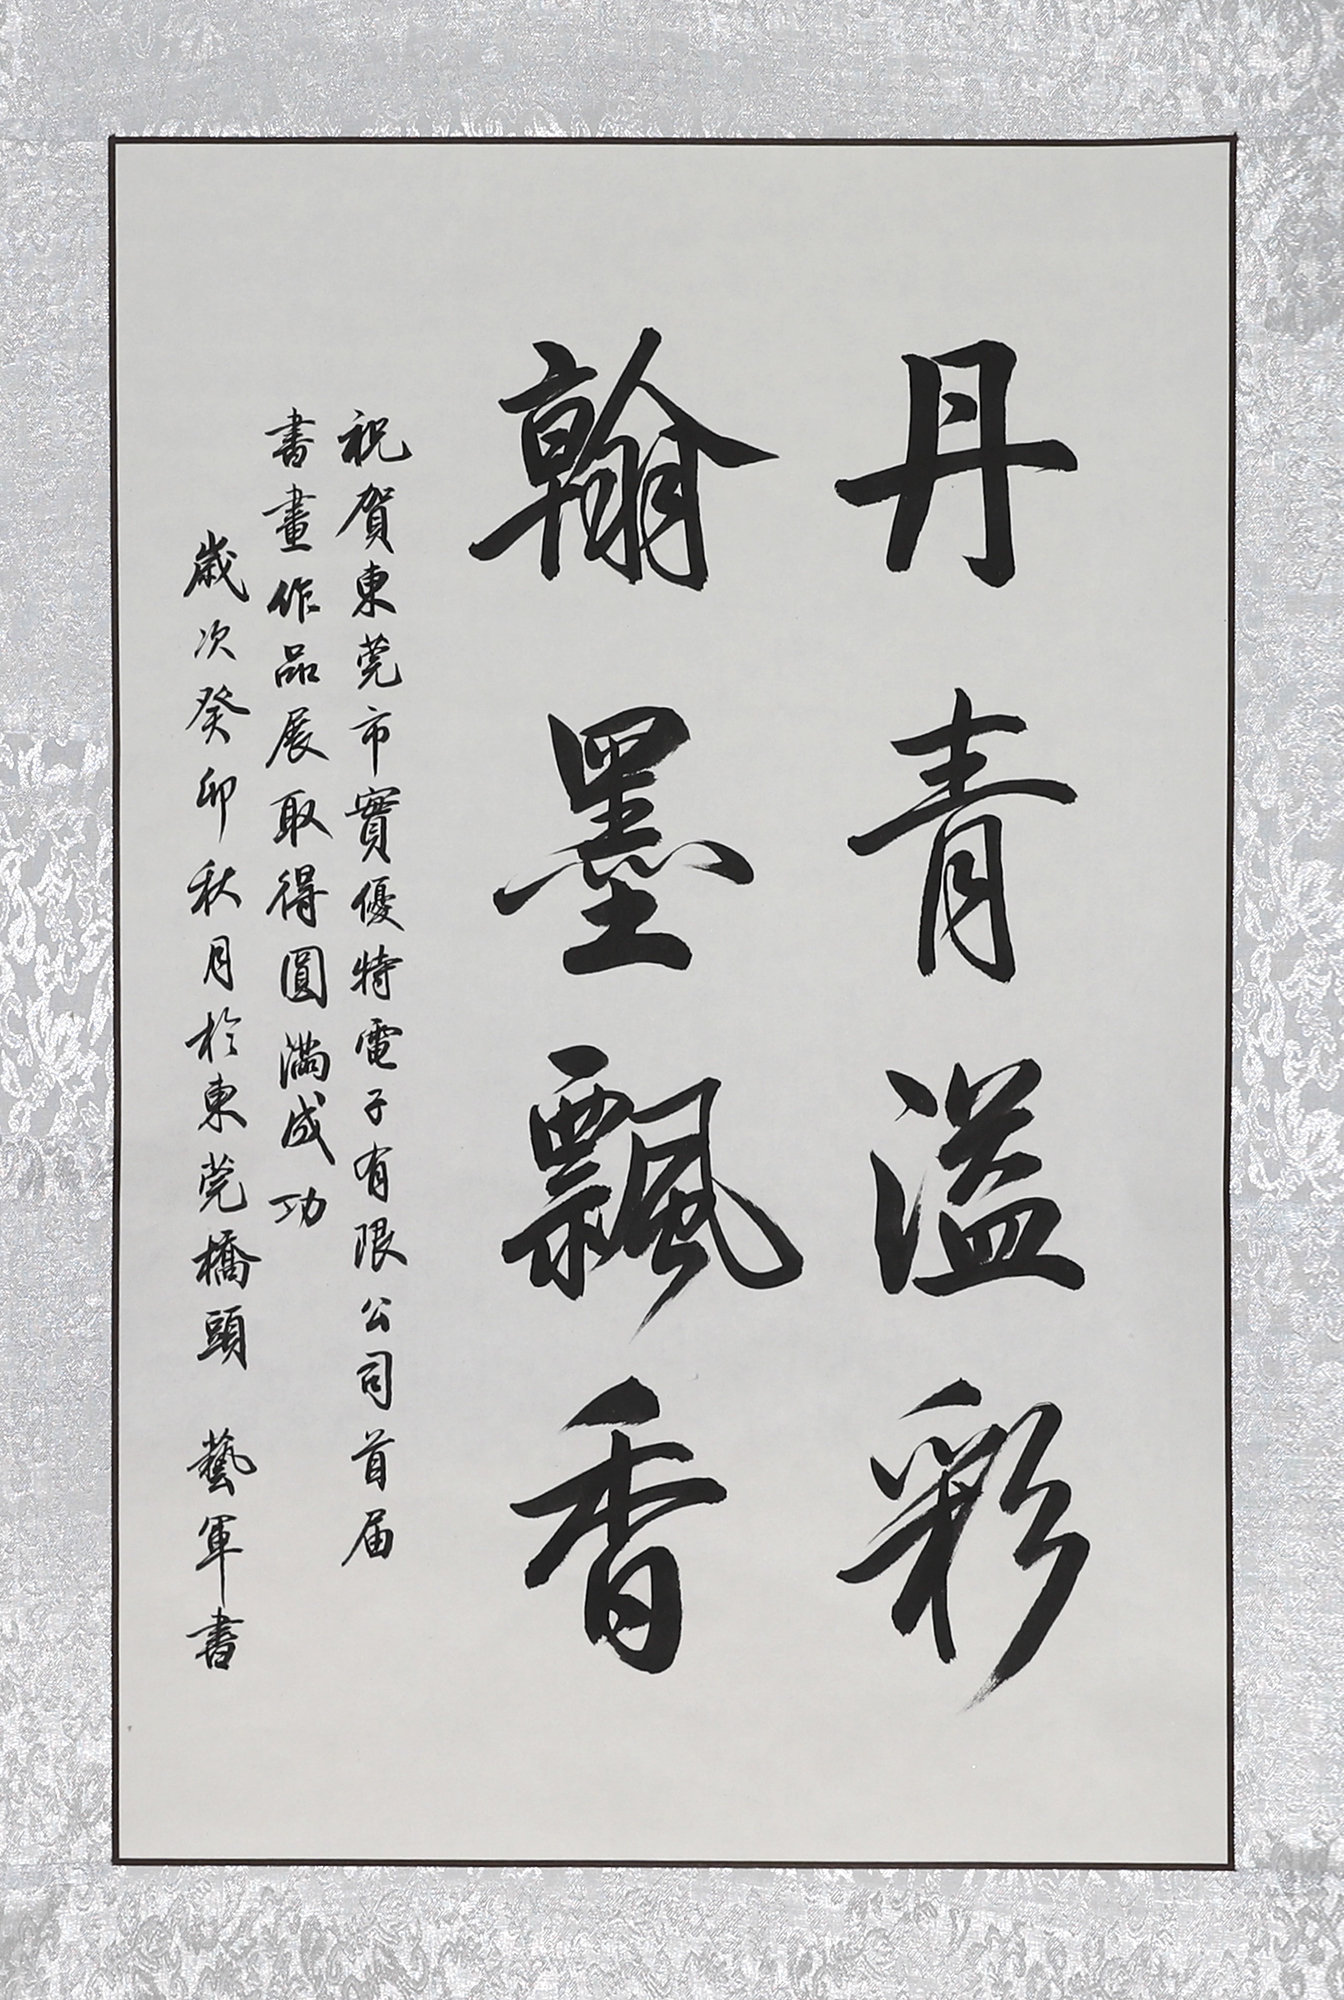 丹青溢彩
翰墨飄香
祝賀東莞市實優特電子有限公司首届
書畫作品展取得圓滿成功
歲次癸卯秋月於東莞橋頭 藝軍書